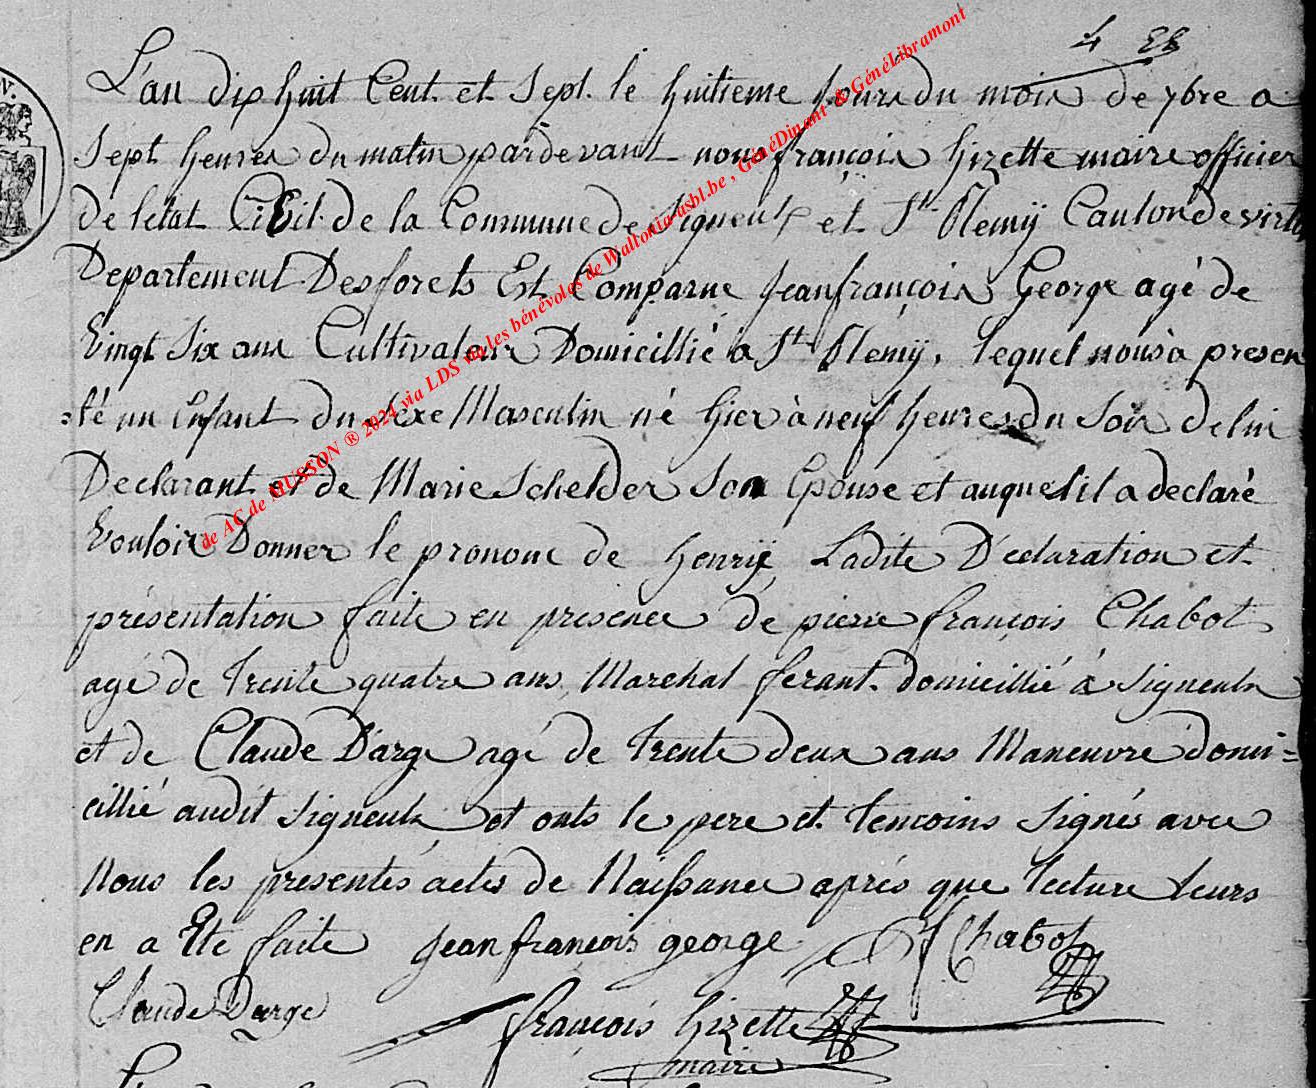 L'an dix huit Cent et Sept le huitieme jours du mois de 7bre a
Sept heures du matin pardevant nous françois hizette maire officier
de letat Civil de la Commune de Signeulx et St Remÿ Canton de virton
Departement Desforets Est Comparue Jeanfrançois George agé de
Vingt Six ans Cultivateur Domicillié a St Remÿ, lequel nous à presen
=té un Enfant du sexe Masculin né hier à neuf heures du Soir de lui
Declarant et de Marie Schelder Son Epouse et auquel il a declaré
Vouloir Donner le pronom de henrÿ Ladite Déclaration et
présentation faite en presence de pierre françois Chabot
agé de Trente quatre ans Marehal ferant domicillié à Signeulx
et de Claude Darge agé de Trente deux ans Maneuvre domi=
cillié audit Signeulx et onts le pere et Temoins Signés avec
Nous les presentes actes de Naissance aprés que lecture leurs
en a Eté faite Jean françois george Chabot
Claude Darge
françois hizette
maire
de AC de MUSSON ® 2024 via LDS via les bénévoles de Wallonia-asbl.be , GénéDinant & GénéLibramont